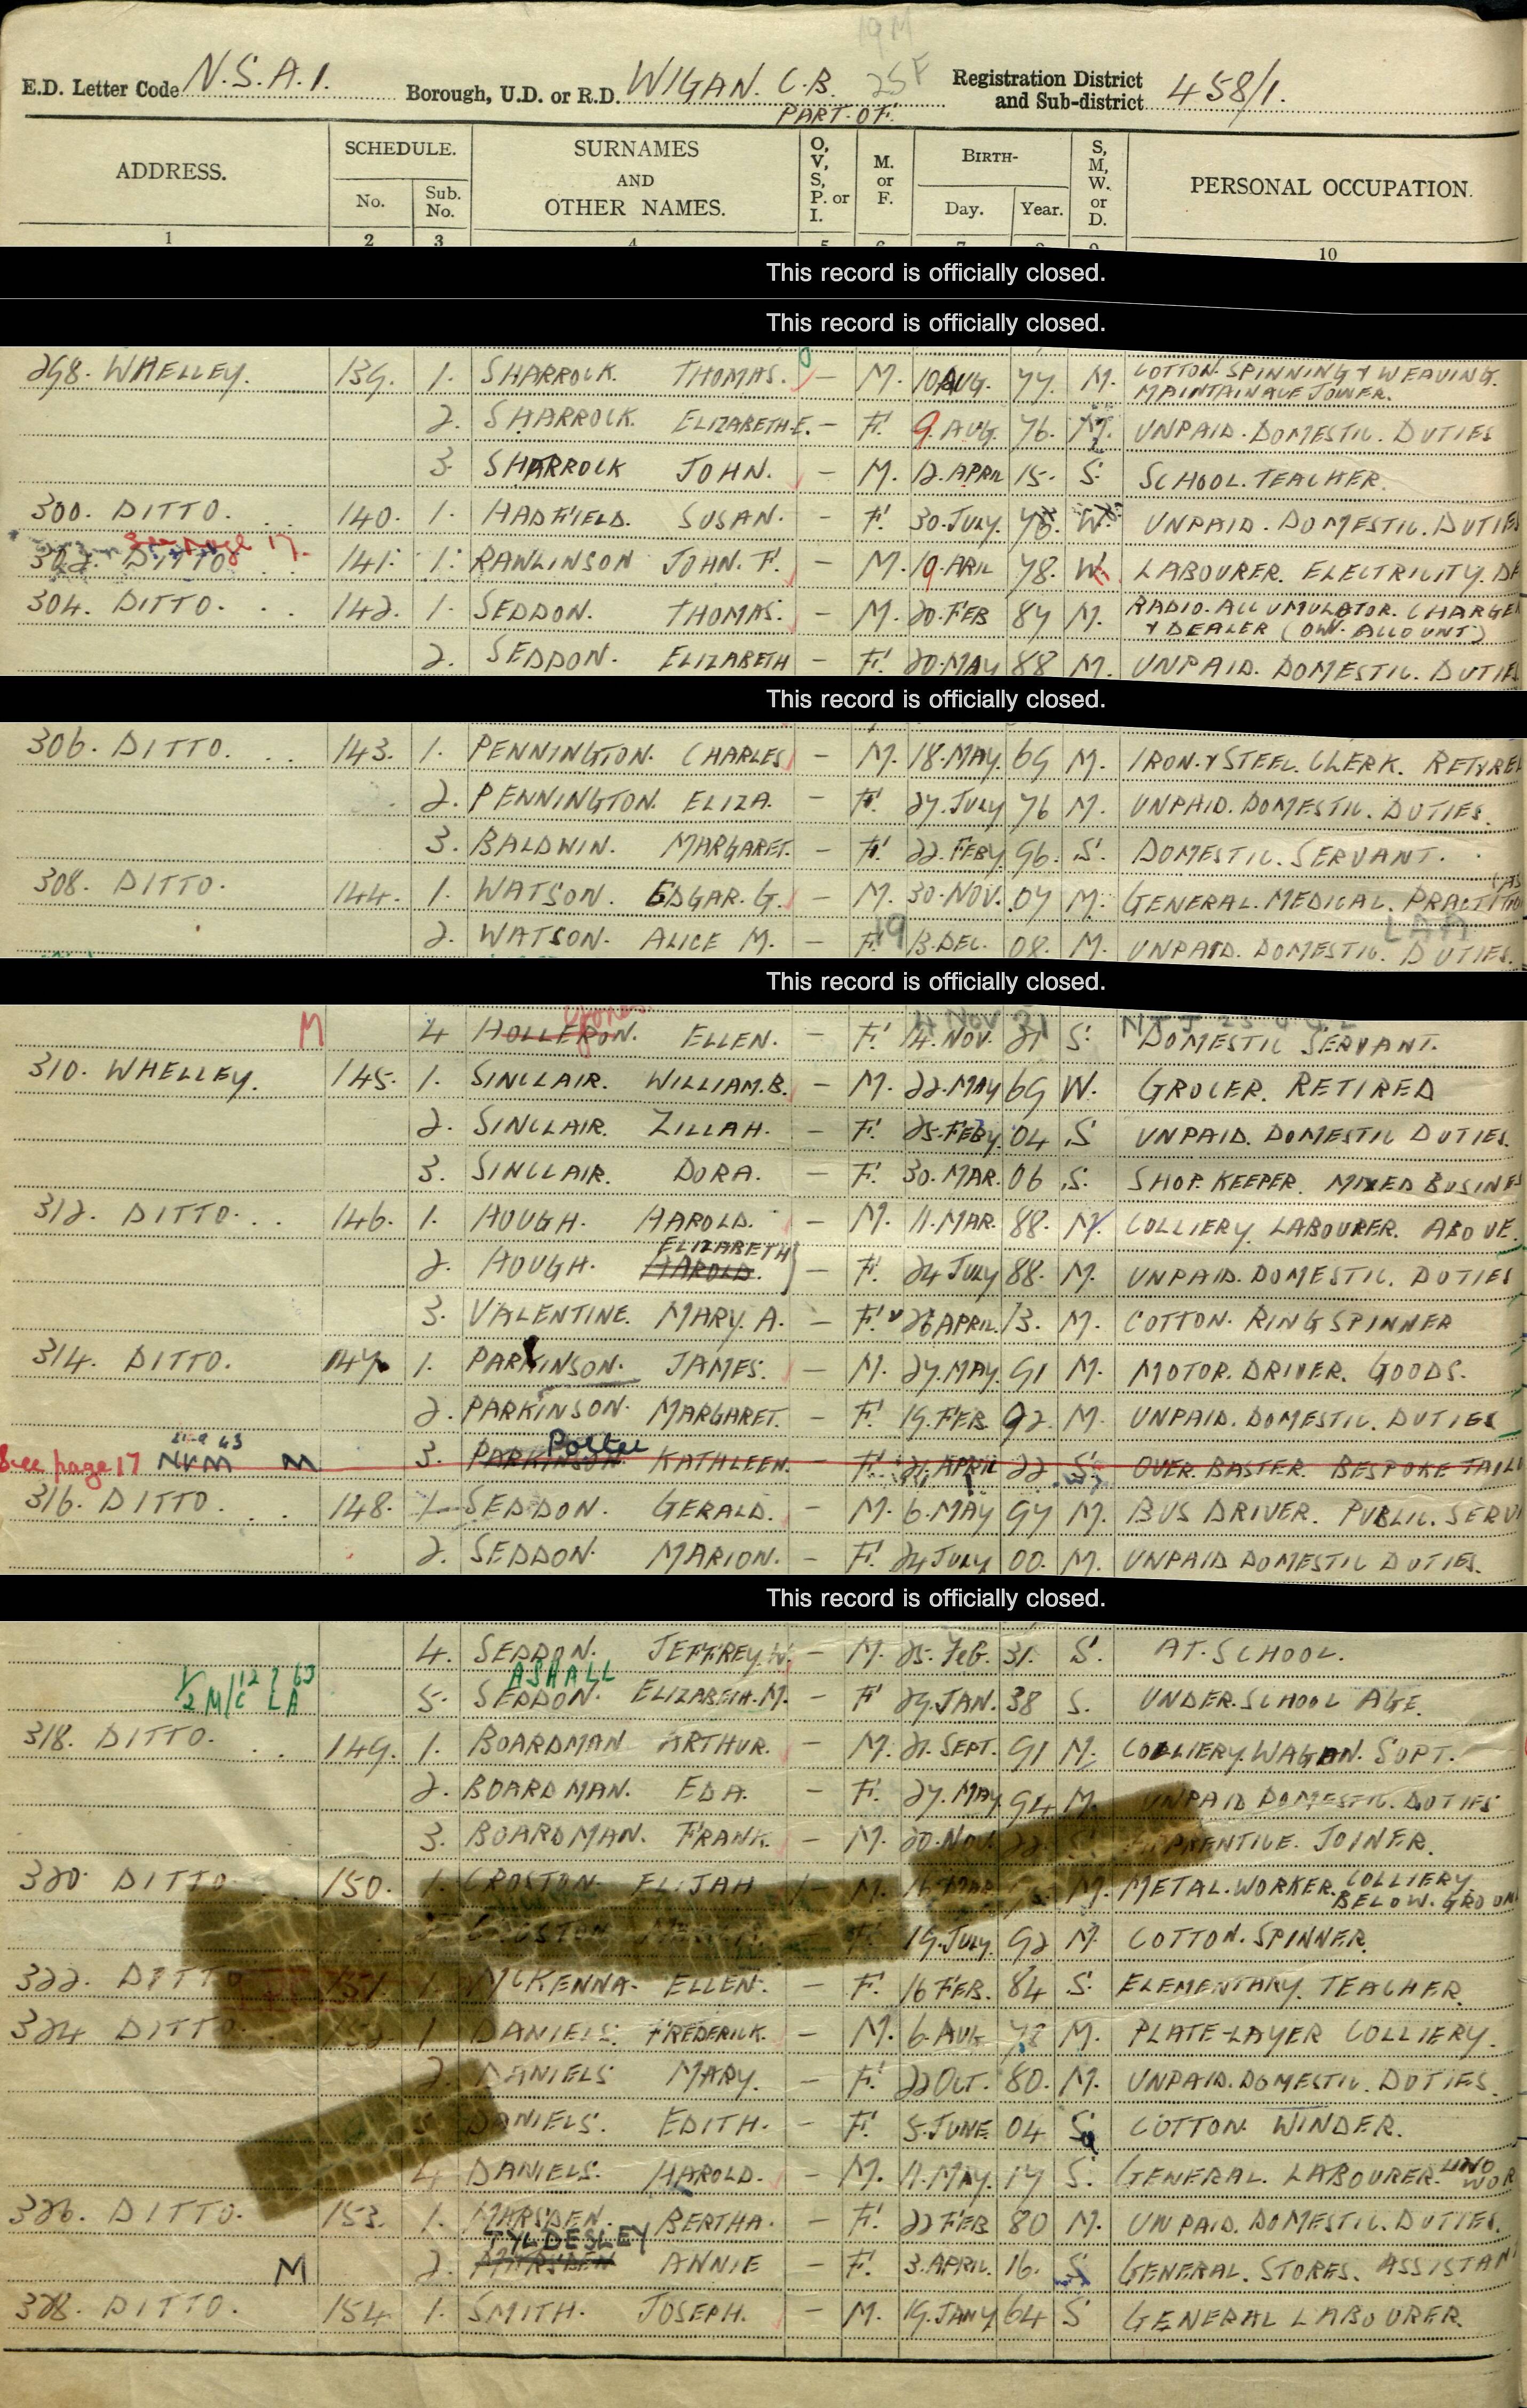 19 M
25 F
E.D. Letter Code N.S.A.1. Borough, U.D. or R.D. WIGAN. C.B. PART. OF. Registration District and Sub-district 458/1.
ADDRESS. SCHEDULE. No. Sub. No. SURNAMES AND OTHER NAMES. O, V, S, P. or I. M. or F. BIRTH- Day. Year. S, M, W. or D. PERSONAL OCCUPATION.
1 2 3 4 5 6 7 8 9 10
This record is officially closed.
This record is officially closed.
298. WHELLEY. 139. 1. SHARROCK. THOMAS. — M. 10 AUG. 77. M. COTTON. SPINNING & WEAVING.
MAINTAINANCE JOINER.
2. SHARROCK. ELIZABETH.E. — F. 9. AUG. 76. M. UNPAID. DOMESTIC. DUTIES
3. SHARROCK JOHN. — M. 12. APRIL 15. S. SCHOOL. TEACHER.
300. DITTO. 140. 1. HADFIELD. SUSAN. — F. 30. JULY. W. UNPAID. DOMESTIC. DUTIES
See page 17.
302. DITTO 141. 1. RAWLINSON JOHN. F. — M. 19. ARIL 78. W. LABOURER. ELECTRICITY. DE
304. DITTO. 142. 1. SEDDON. THOMAS. — M. 20. FEB 87 M. RADIO. ACCUMULATOR. CHARGE
& DEALER (OW. ACCOUNT)
2. SEDDON. ELIZABETH — F. 20. MAY 88 M. UNPAID. DOMESTIC. DUTIES
This record is officially closed.
306. DITTO. 143. 1. PENNINGTON. CHARLES — M. 18. MAY. 69 M. IRON. & STEEL. CLERK. RETIRED
2. PENNINGTON. ELIZA. — F. 27. JULY 76 M. UNPAID. DOMESTIC. DUTIES.
3. BALDWIN. MARGARET. — F. 22. FEBY. 96. S. DOMESTIC. SERVANT.
308. DITTO. 144. 1. WATSON. EDGAR. G. — M. 30. NOV. 07 M. GENERAL. MEDICAL. PRACTITIO
2. WATSON. ALICE M. — F. 19 13. DEC. 08. M. UNPAID. DOMESTIC. DUTIES.
This record is officially closed.
M 4 HOLLERON. Jones ELLEN. — F. 14. NOV. 21 S. DOMESTIC SERVANT.
4 NOV 21
310. WHELLEY. 145. 1. SINCLAIR. WILLIAM.B. — M. 22. MAY 69 W. GROCER. RETIRED
2. SINCLAIR. ZILLAH. — F. 25. FEBY. 04 S UNPAID. DOMESTIC DUTIES.
3. SINCLAIR. DORA. — F. 30. MAR. 06 S. SHOP. KEEPER. MIXED BUSINES
312. DITTO. 146. 1. HOUGH. HAROLD. — M. 11. MAR. 88. M. COLLIERY. LABOURER. ABOVE.
ELIZABETH
2. HOUGH. HAROLD. — F. 24 JULY 88. M. UNPAID. DOMESTIC. DUTIES
3. VALENTINE. MARY. A. — F. 26 APRIL. 13. M. COTTON. RING SPINNER
314. DITTO. 147. 1. PARKINSON. JAMES. — M. 27. MAY. 91 M. MOTOR. DRIVER. GOODS.
2. PARKINSON. MARGARET. — F. 19. FEB. 92. M. UNPAID. DOMESTIC. DUTIES
See page 17 NVM M 3. PARKINSON. KATHLEEN. — F. 21. APRIL 22 S. OVER. BASTER. BESPOKE TAIL
316. DITTO. 148. 1. SEDDON. GERALD. — M. 6. MAY 97 M. BUS DRIVER. PUBLIC. SERVI
2. SEDDON. MARION. — F. 24 JULY 00. M. UNPAID DOMESTIC DUTIES.
This record is officially closed.
4. SEDDON. JEFFREY. W. — M. 25. FEB. 31. S. AT. SCHOOL.
ASHALL
5. SEDDON. ELIZABETH. M. — F 29. JAN. 38 S. UNDER. SCHOOL AGE.
2 M/C LA
318. DITTO. 149. 1. BOARDMAN ARTHUR. — M. 21. SEPT. 91 M. COLLIERY. WAGON. SUPT.
2. BOARDMAN. EDA. — F. 27. MAY 94 M. UNPAID DOMESTIC. DUTIES
3. BOARDMAN. FRANK. — M. 20. NOV. 22 APPRENTICE. JOINER.
320 DITTO 150. 1. CROSTON. ELIJAH — M. 16. MAR M. METAL. WORKER. COLLIERY
BELOW. GROUN
CROSTON F. 19. JULY. 92 M. COTTON. SPINNER.
322. DITTO 151. 1. McKENNA. ELLEN. — F. 16 FEB. 84 S. ELEMENTARY. TEACHER.
324 DITTO. 152. 1 DANIELS. FREDERICK. — M. 6. AUG 78 M. PLATE-LAYER COLLIERY.
2. DANIELS MARY. — F. 22 OCT. 80. M. UNPAID. DOMESTIC. DUTIES.
DANIELS. EDITH. — F. 5. JUNE 04 S. COTTON WINDER.
4 DANIELS. HAROLD. — M. 11. MAY. 17 S. GENERAL. LABOURER. LINO WOR
326. DITTO. 153. 1. MARSDEN. BERTHA. — F. 22 FEB 80 M. UNPAID. DOMESTIC. DUTIES.
TYLDESLEY
M 2. MARSDEN ANNIE — F. 3. APRIL. 16. S GENERAL. STORES. ASSISTAN
328. DITTO. 154 1. SMITH. JOSEPH. — M. 19. JANY 64 S GENERAL LABOURER